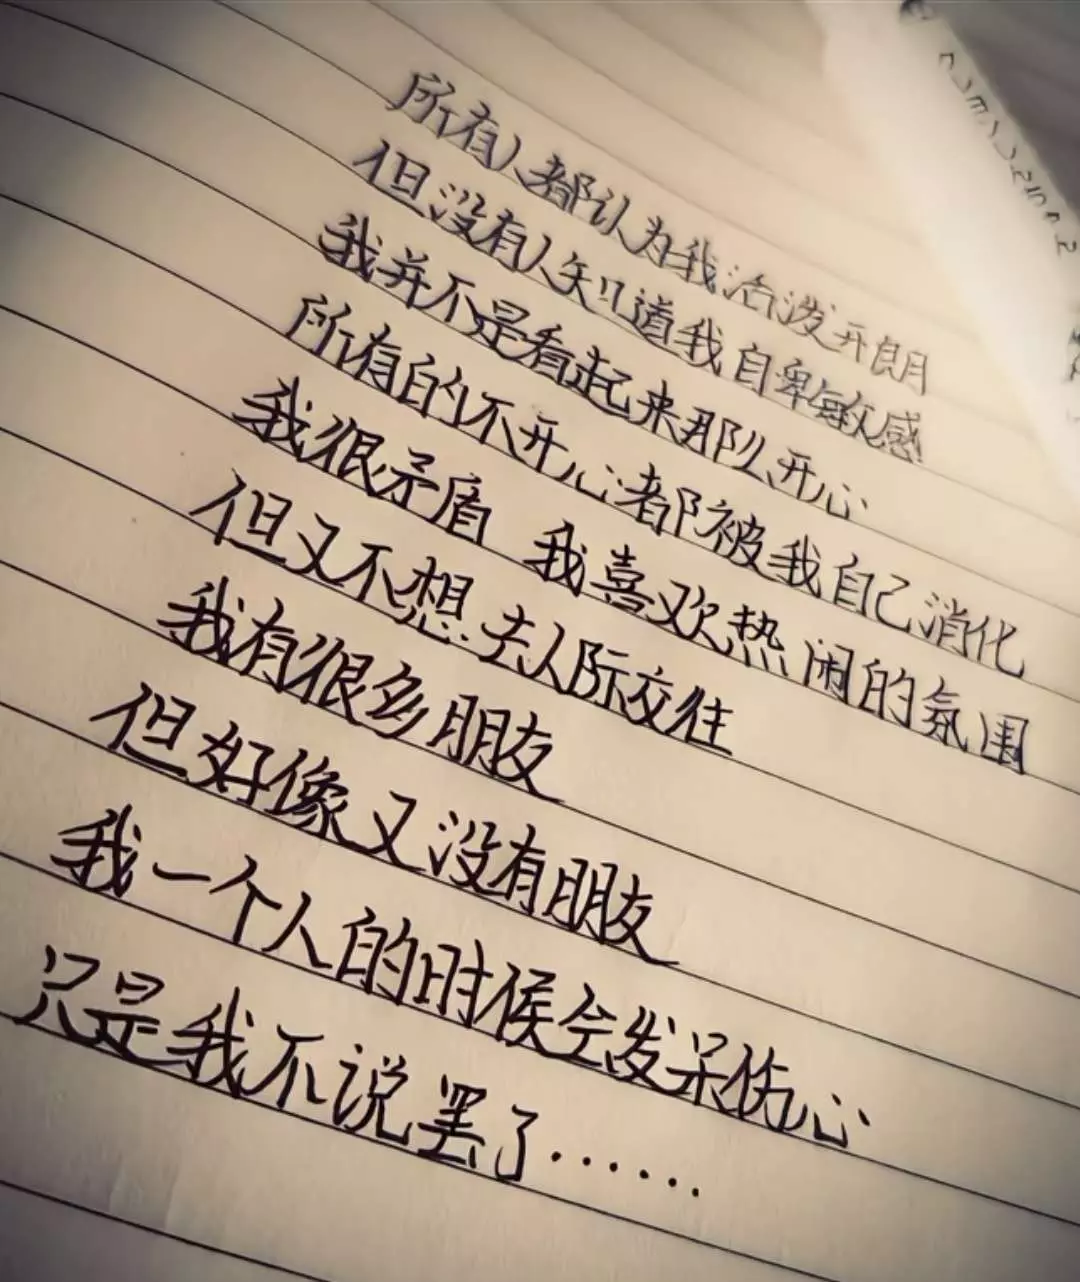 所有人都认为我活泼开朗
但没有人知道我自卑敏感
我并不是看起来那么开心
所有的不开心都被我自己消化
我很矛盾 我喜欢热闹的氛围
但又不想去人际交往
我有很多朋友
但好像又没有朋友
我一个人的时候会发呆伤心
只是我不说罢了······